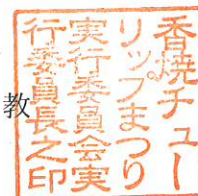 教
香焼チュー
リップまつり
実行委員会実
行委員長之印